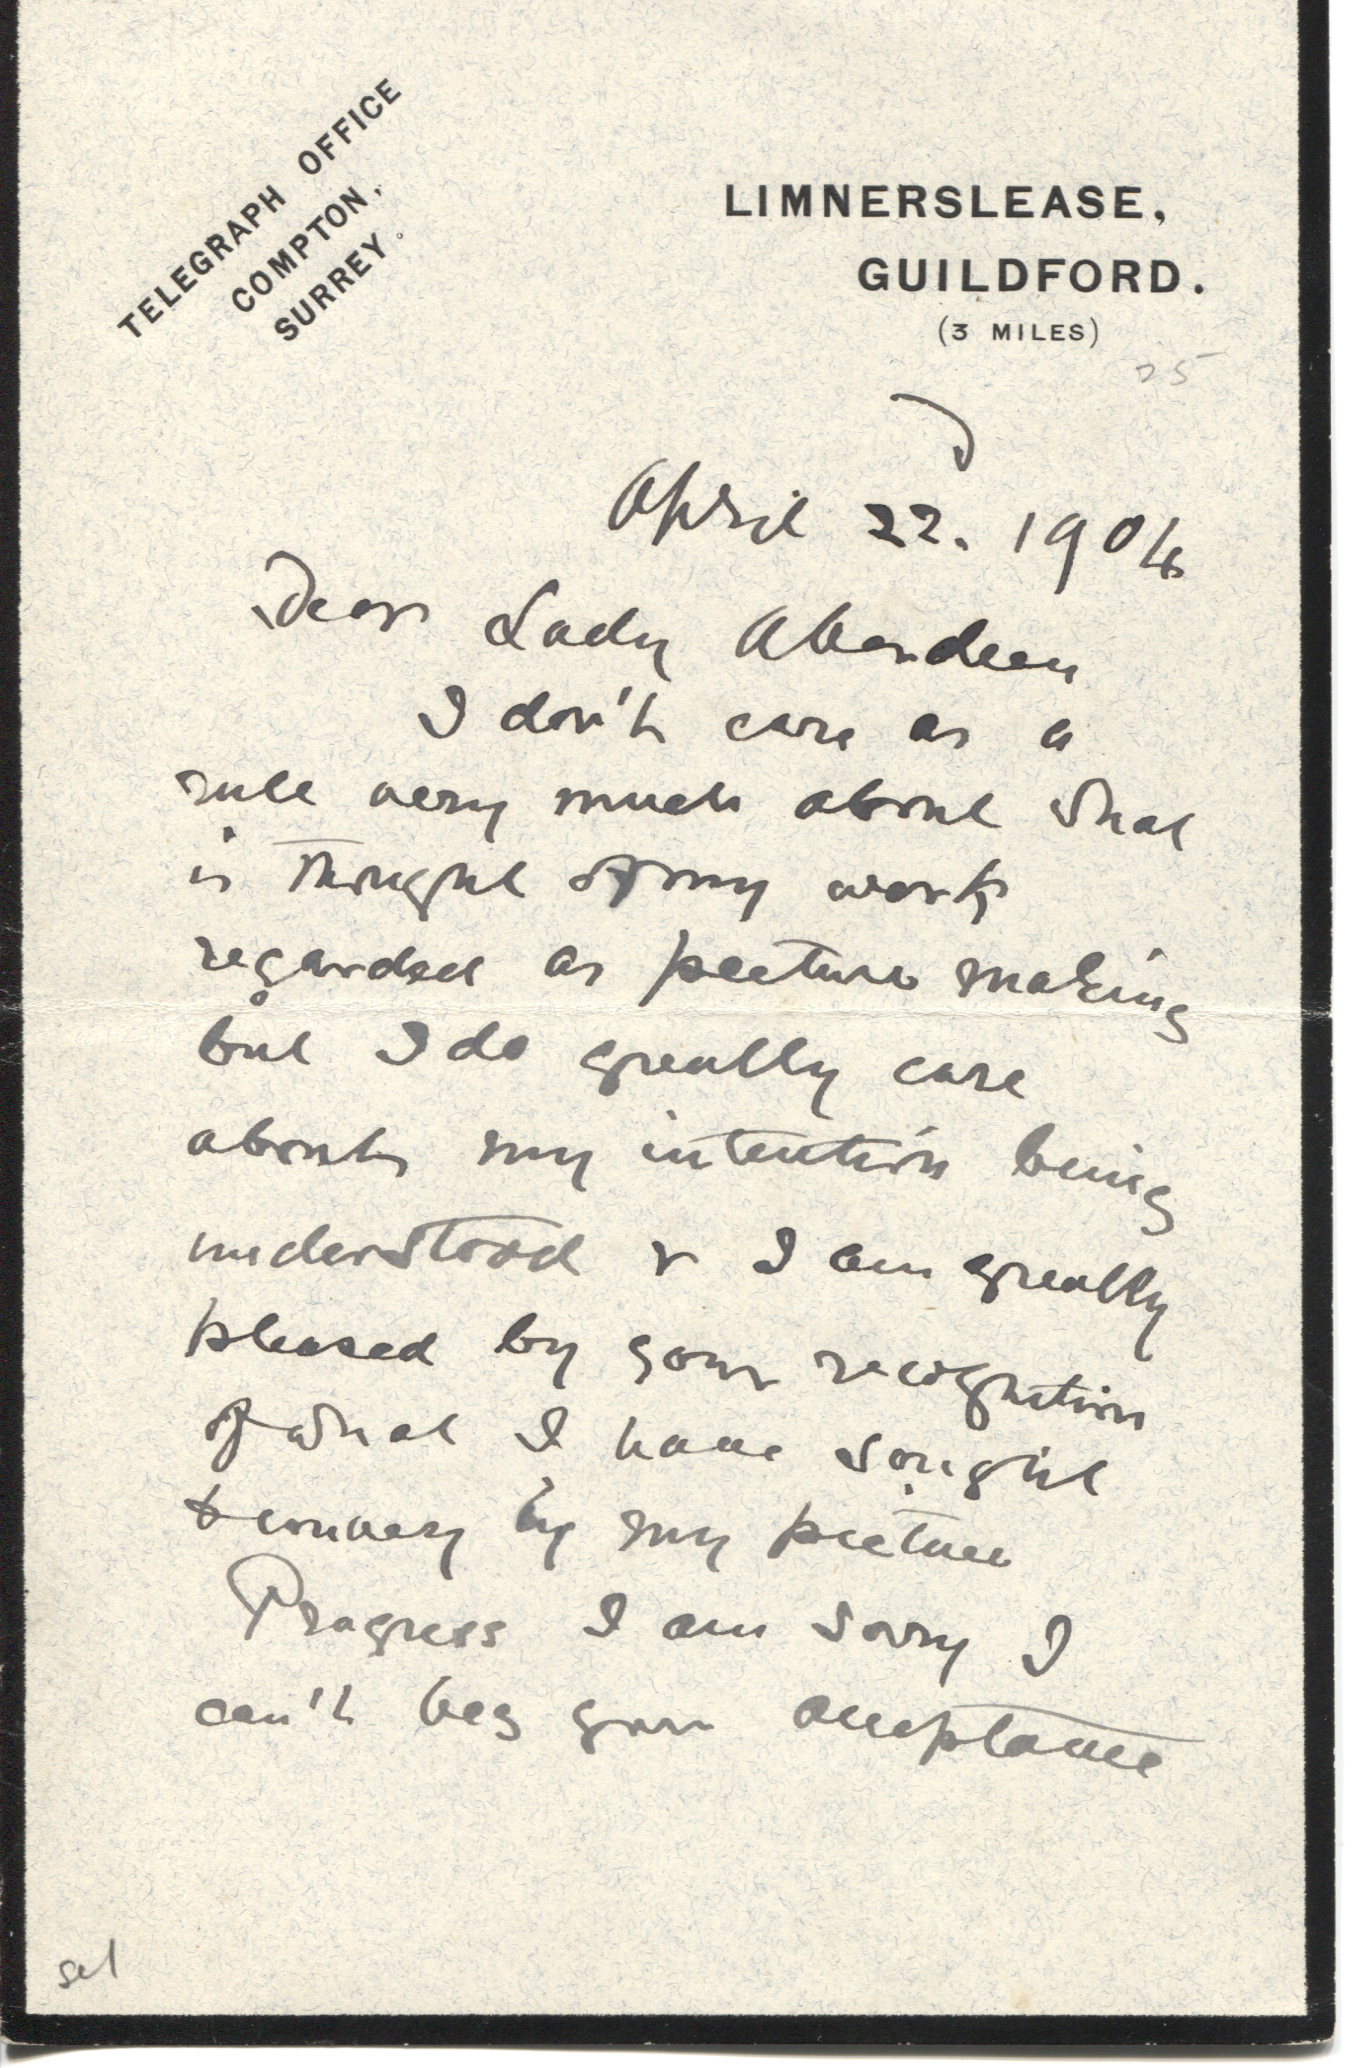 TELEGRAPH OFFICE
COMPTON,
SURREY.
LIMNERSLEASE,
GUILDFORD.
(3 MILES)
April 22. 1904
Dear Lady Aberdeen
I don't care as a
rule very much about what
is thought of my work
regarded as picture making
but I do greatly care
about my intention being
understood & I am greatly
pleased by your recognition
of what I have sought
to convey by my picture
Progress I am sorry I
can't beg your acceptance